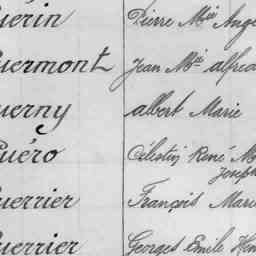 uérin Pierre Mie Ange
uermont Jean Mie alfred
uerny albert Marie
uéro Célestin René M
Joseph
uerrier François Marie
uerrier Georges Emile Hen